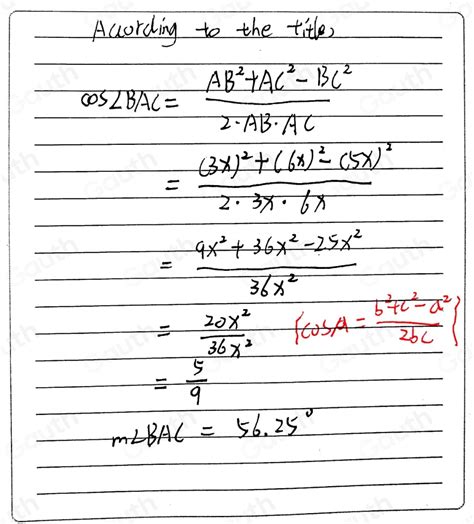 According to the title,
cos∠BAC = (AB²+AC²-BC²)/(2·AB·AC)
= ((3x)²+(6x)²-(5x)²)/(2·3x·6x)
= (9x²+36x²-25x²)/(36x²)
= 20x²/36x² {cosA = (b²+c²-a²)/(2bc)}
= 5/9
m∠BAC = 56.25°